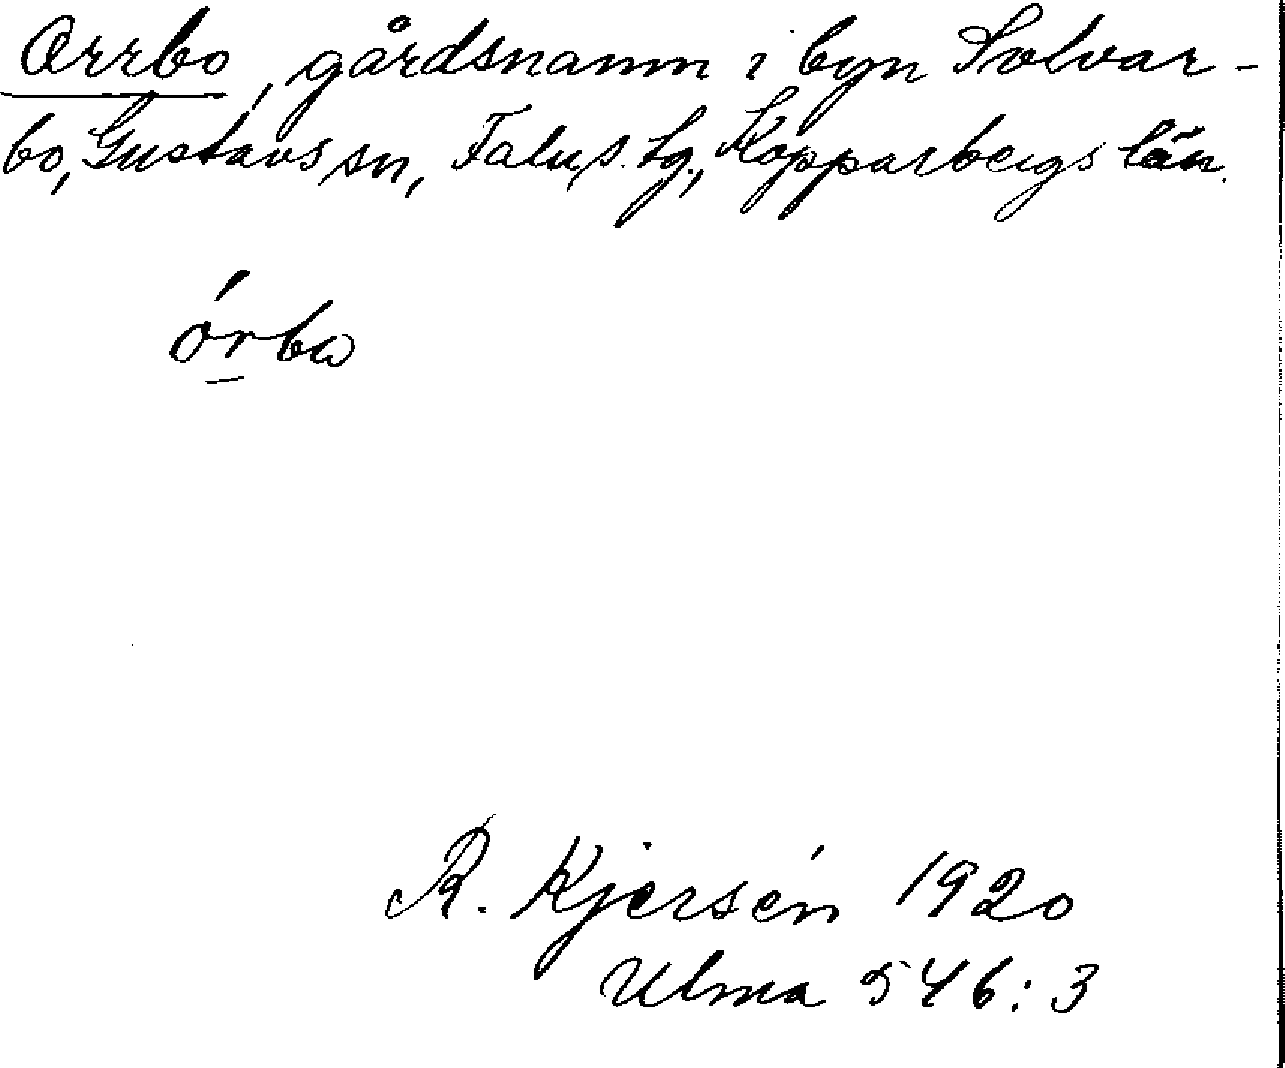 Orrbo, gårdsnamn i byn Solvar-
bo, Gustavs sn, Falu s. tg., Kopparbergs län.
órbω
R. Kjersén 1920
Ulma 546:3